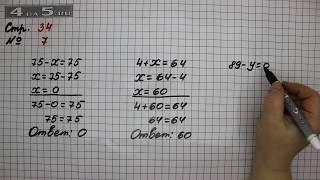 4DA5.RU
Стр. 34
№ 7
75-x=75
x=75-75
x=0
75-0=75
75=75
Ответ: 0
4+x=64
x=64-4
x=60
4+60=64
64=64
Ответ: 60
89-y=0